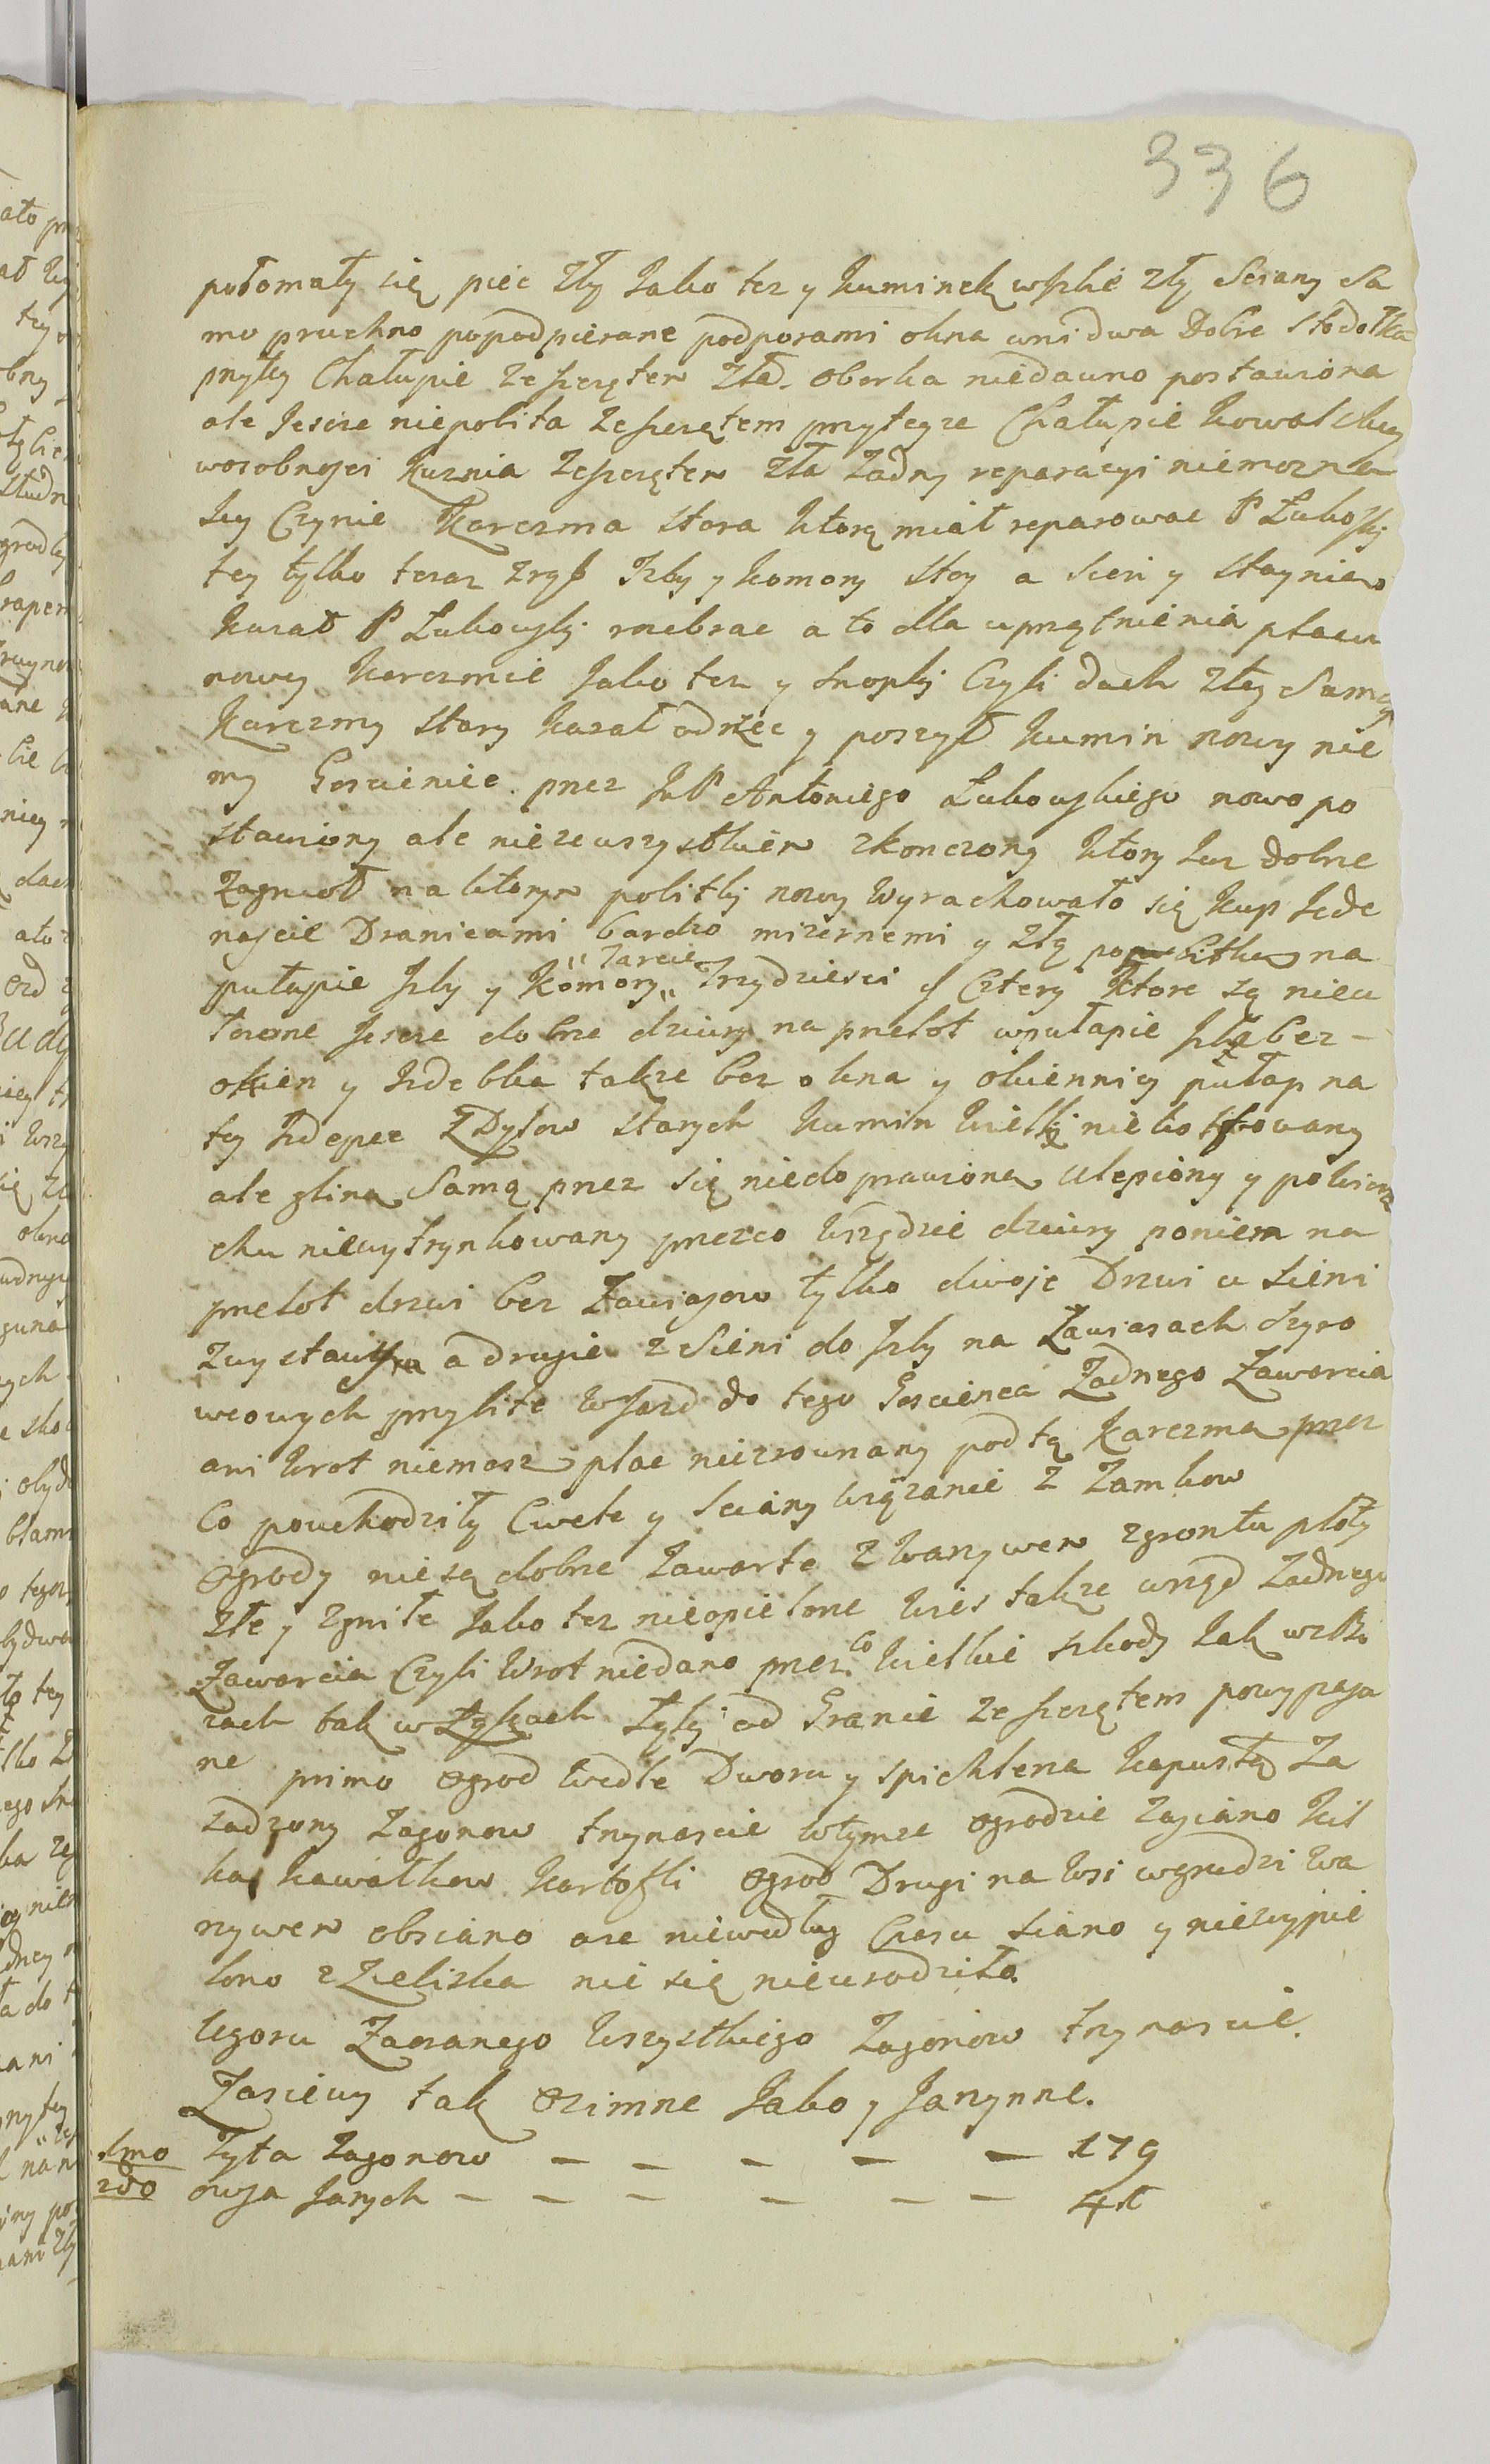 336
połomały się piec zły Jako tez y kuminek wizbie zły Sciany Sa
mo pruchno popodpierane podporami okna ani dwa Dobre stodołka
przytey Chałupie zeszczętem zła. oborka niedawno postawiona
ale Jescze niepobita zeszczętem przyteyze Chałupie kowalskiey
wosobnosci Kuznia zeszczętem zła zadny reparacyi niemozna
Jey Czynic Karczma stara ktorą miał reparowac P Łukowsky
tey tylko teraz zrąb Izby y komory stoy a sien y staynie
kazał P Łukowsky rozebrac a to dla uprzątnienia placu
nowey karczmie Jako tez y snopky Czyli dach zteyze Samey
karczmy stary kazał odrzec y poszyc kumin nowy nie
my Goscieniec przez JmP Antoniego Łukowskiego nowo po
stawiony ale niezewszystkiem zkonczony ktory Juz dobrze
zagnioł na ktorym pobitky nowy Wyrachowało się kup Jede
nascie Dranicami bardzo mizernemi y złą pobitką na
pułapie Izby y Komory „ Tarcic „ Trzydziesci y Cztery Ktore są nieu
torone Jescze dobrze dziury na przelot wpułapie Izba bez -
okien y Izdebka takze bez okna y okiennicy pułap na
tey Izdepce z Dylow starych kumin Wielky
ale gliną Samą przez się niedoprawioną Ulepiony y powierz
chu niewytrynkowany przezco Wszędzie dziury poniem na
przelot drzwi bez Zawiasow tylko dwoje Drzwi u sieni
z wystawką a drugie z Sieni do Izby na Zawiasach
wcowych przybite Wjazd do tego Goscienca Zadnego Zawarcia
ani Wrot niemasz plac niezrownany pod tą Karczmą przez
Co powchodziły Cwele y Sciany Wiązanie z Zamkow
Ogrody niesą dobrze zawarte z Warzywem zgrontu płoty
złe y zgniłe Jako tez nieopielone Wies takze wsząd Zadnego
Zawarcia Czyli Wrot niedano przez Co Wielkie szkody Jak wzbo
zach tak w Łąkach Łąky od Granic zeszczętem powypasa
ne primo Ogrod Wedle Dworu y spichlerza kapustą Za
sadzony Zagonow trzynascie Wtymze Ogrodzie zasiano kil
ka kawałkow kartofli Ogrod Drugi na Wsi wgrudzi Wa
rzywem obsiano ale niewedług Czasu siano y niewypie
lono z Zieliska nic się nieurodziło
Ugoru Zaoranego Wszystkiego Zagonow trzynascie.
Zasiewy tak Ozimne Jako y Jarzynne.
1mo Zyta Zagonow — — — — — 179
2do owsa Jarych — — — — — — 41